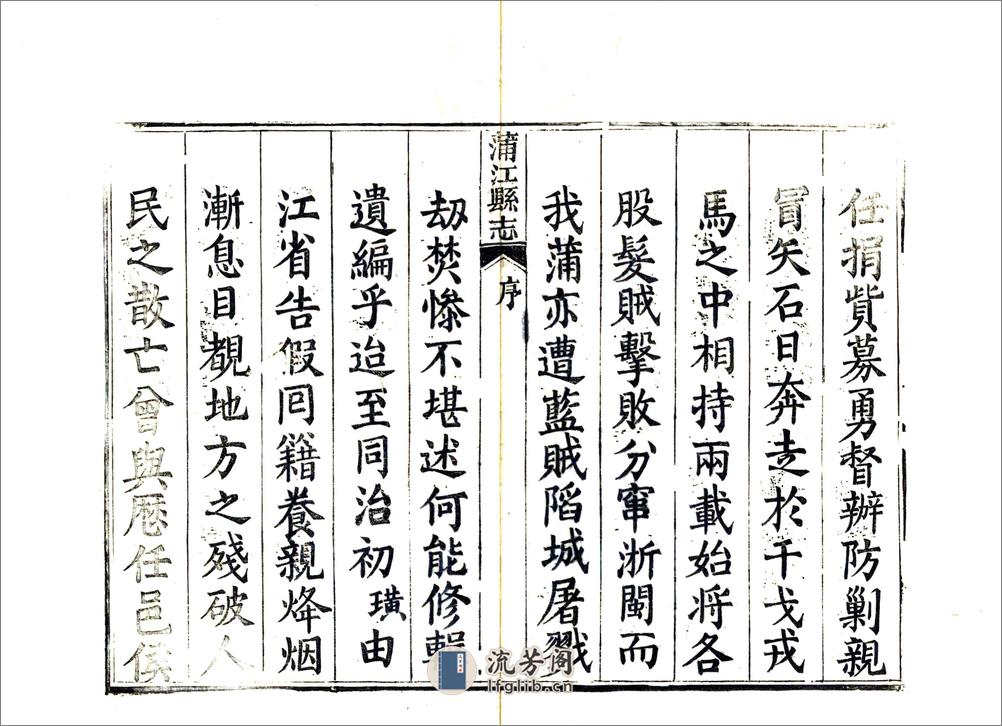 任捐貲募勇督辦防剿親
冒矢石日奔走於干戈戎
馬之中相持兩載始將各
股髮賊擊敗分竄浙閩而
我蒲亦遭藍賊陷城屠戮
蒲江縣志
序
劫焚慘不堪述何能修輯
遺編乎迨至同治初璜由
江省告假囘籍養親烽烟
漸息目覩地方之殘破人
民之散亡曾與歷任邑侯
流芳阁
lfglib.cn